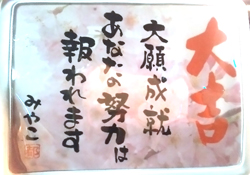 大吉
大願成就
あなたの努力は
報われます
みやこ